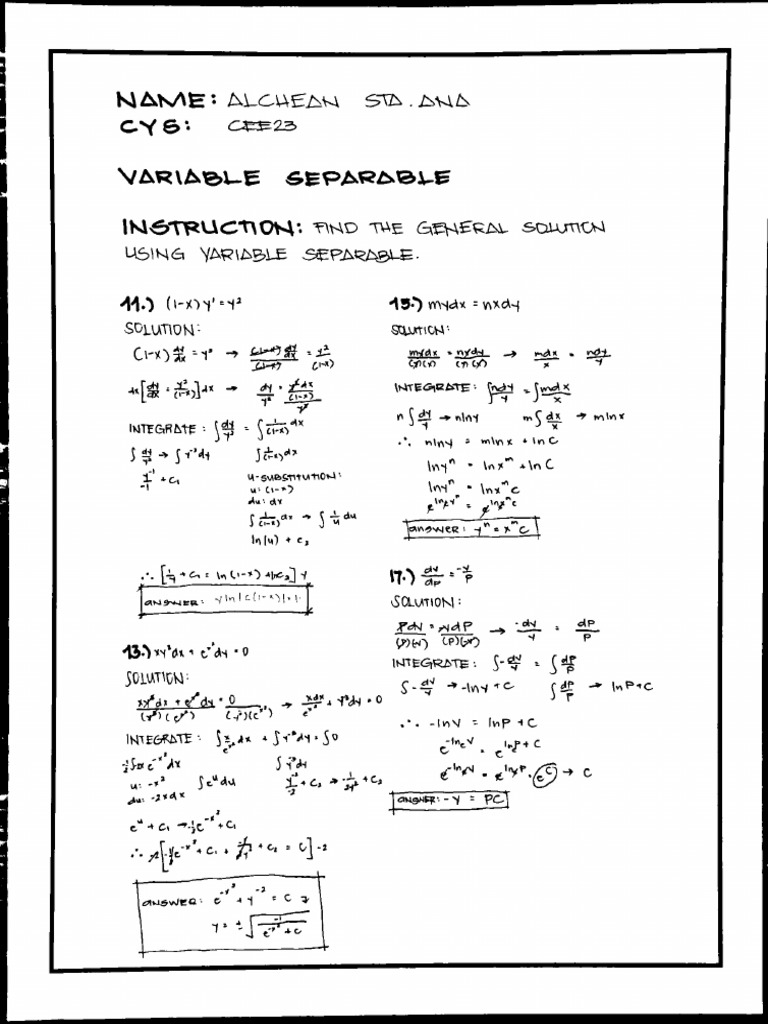 NAME: ALCHEAN STA. ANA
CYS: CEE23
VARIABLE SEPARABLE
INSTRUCTION: FIND THE GENERAL SOLUTION
USING VARIABLE SEPARABLE.
11.) (1-x) y' = y²
SOLUTION:
(1-x) dy/dx = y² → (1-x) dy/dx / (1-x) = y²/(1-x)
dx [dy/dx = y²/(1-x)] dx →
INTEGRATE: ∫ dy/y² = ∫ 1/(1-x) dx
∫ dy/y² → ∫ y⁻² dy ∫ 1/(1-x) dx
y⁻¹/-1 + C₁
U-SUBSTITUTION:
u: (1-x)
du: dx
∫ 1/(1-x) dx → ∫ 1/u du
ln(u) + C₂
ANSWER: y ln|C(1-x)|
13.) xy³dx + e^x² dy = 0
SOLUTION:
→ xdx/e^x² + y⁻³dy = 0
INTEGRATE: ∫ x/e^x² dx + ∫ y⁻³ dy = ∫ 0
u: -x² ∫ e^u du
du: -2xdx
y⁻²/-2 + C₂ → -1/2y² + C₂
ANSWER: e^-x² + y⁻² = C
15.) mydx = nxdy
SOLUTION:
mydx/(y)(x) = nxdy/(y)(x) → mdx/x = ndy/y
INTEGRATE: ∫ ndy/y = ∫ mdx/x
n ∫ dy/y → nlny m ∫ dx/x → mlnx
∴ nlny = mlnx + lnC
lny^n = lnx^m + lnC
lny^n = lnx^m C
e^lny^n = e^lnx^m C
ANSWER: y^n = x^m C
17.) dv/dp = -v/p
SOLUTION:
→ -dv/v = dP/P
INTEGRATE: ∫ -dv/v = ∫ dP/P
∫ -dv/v → -lnv + C ∫ dP/P → lnP + C
∴ -lnV = lnP + C
e^lnP + C
→ C
ANSWER: -V = PC